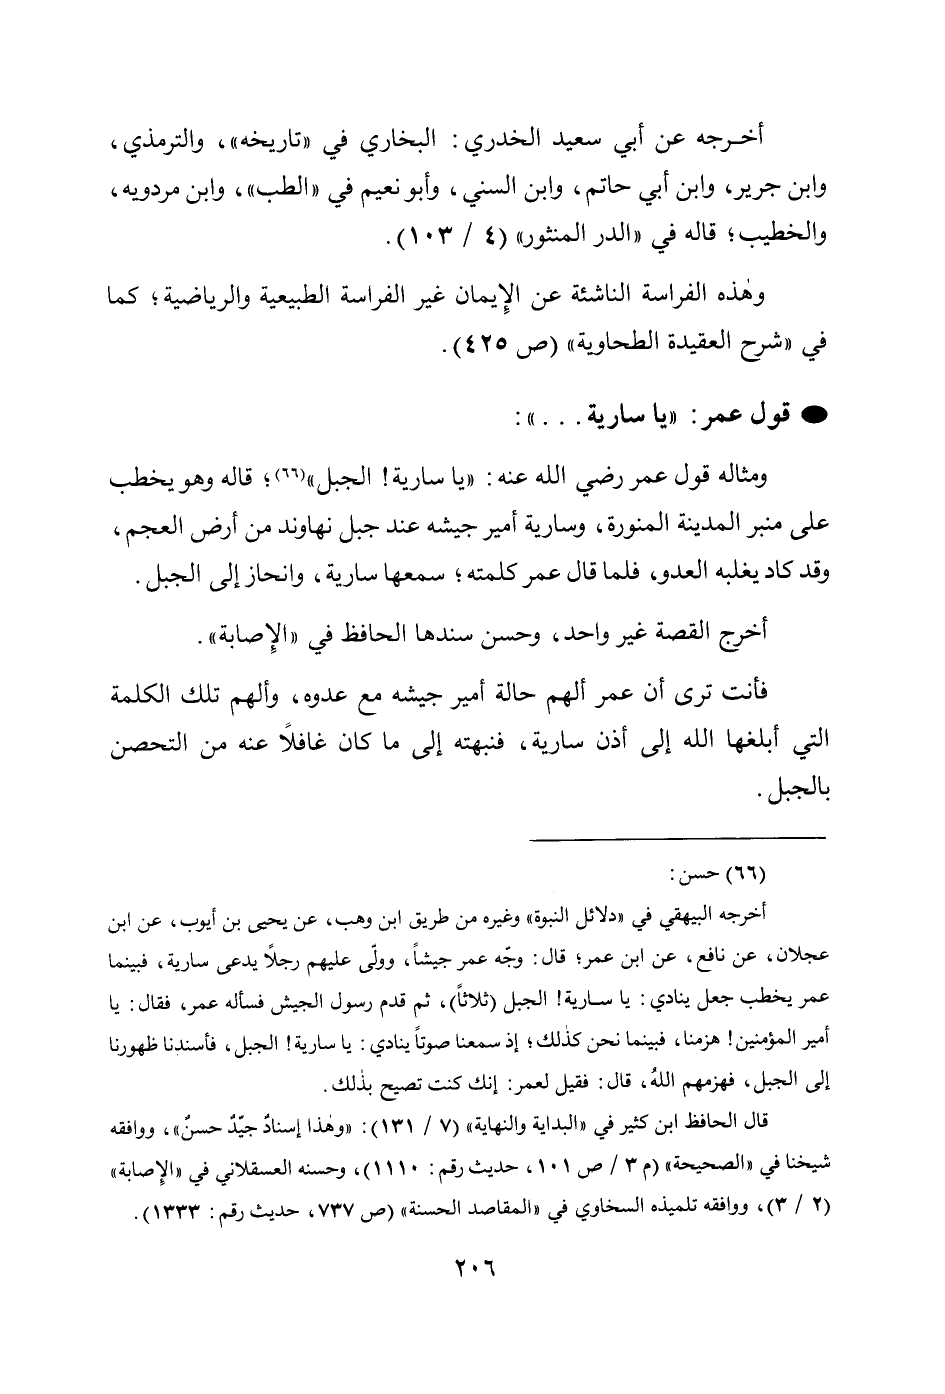 أخـرجه عن أبي سعيد الخدري : البخاري في «تاريخه» ، والترمذي ،
وابن جرير، وابن أبي حاتم، وابن السني، وأبو نعيم في «الطب»، وابن مردويه،
والخطيب؛ قاله في «الدر المنثور» (٤ / ١٠٣).
وهٰذه الفراسة الناشئة عن الإيمان غير الفراسة الطبيعية والرياضية؛ كما
في «شرح العقيدة الطحاوية» (ص ٤٢٥).
● قول عمر: «يا سارية . . .»:
ومثاله قول عمر رضي الله عنه: «يا سارية! الجبل»(٦٦)؛ قاله وهو يخطب
على منبر المدينة المنورة، وسارية أمير جيشه عند جبل نهاوند من أرض العجم،
وقد كاد يغلبه العدو، فلما قال عمر كلمته؛ سمعها سارية، وانحاز إلى الجبل.
أخرج القصة غير واحد، وحسن سندها الحافظ في «الإصابة».
فأنت ترى أن عمر ألهم حالة أمير جيشه مع عدوه، وألهم تلك الكلمة
التي أبلغها الله إلى أذن سارية، فنبهته إلى ما كان غافلاً عنه من التحصن
بالجبل.
(٦٦) حسن:
أخرجه البيهقي في «دلائل النبوة» وغيره من طريق ابن وهب، عن يحيى بن أيوب، عن ابن
عجلان، عن نافع، عن ابن عمر؛ قال: وجّه عمر جيشاً، وولّى عليهم رجلاً يدعى سارية، فبينما
عمر يخطب جعل ينادي: يا سـارية! الجبل (ثلاثاً)، ثم قدم رسول الجيش فسأله عمر، فقال: يا
أمير المؤمنين! هزمنا، فبينما نحن كذٰلك؛ إذ سمعنا صوتاً ينادي: يا سارية! الجبل، فأسندنا ظهورنا
إلى الجبل، فهزمهم اللهُ، قال: فقيل لعمر: إنك كنت تصيح بذٰلك.
قال الحافظ ابن كثير في «البداية والنهاية» (٧ / ١٣١): «وهٰذا إسنادٌ جيّدٌ حسنٌ»، ووافقه
شيخنا في «الصحيحة» (م ٣ / ص ١٠١، حديث رقم: ١١١٠)، وحسنه العسقلاني في «الإصابة»
(٢ / ٣)، ووافقه تلميذه السخاوي في «المقاصد الحسنة» (ص ٧٣٧، حديث رقم: ١٣٣٣).
٢٠٦